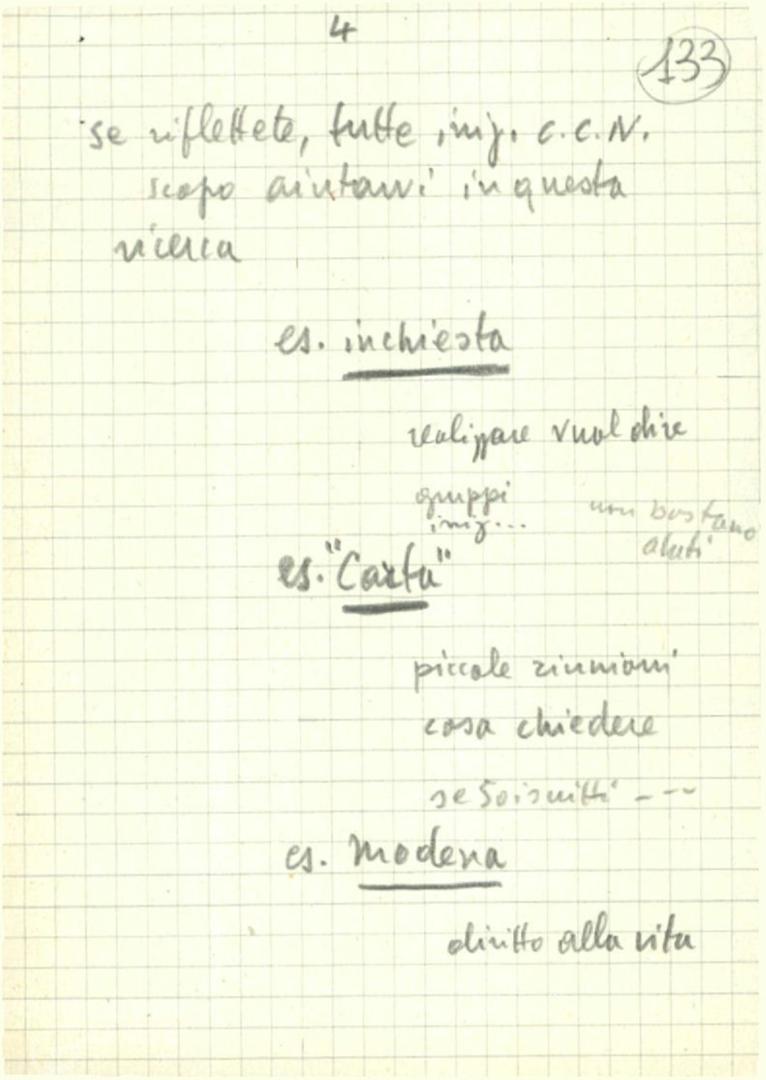 4
133
se riflettete, tutte iniz. C.C.N.
scopo aiutarvi in questa
ricerca
es. inchiesta
realizzare vuol dire
gruppi
iniz...
non bastano
aiuti
es. "Carta"
piccole riunioni
cosa chiedere
se 50 iscritti ---
es. Modena
diritto alla vita